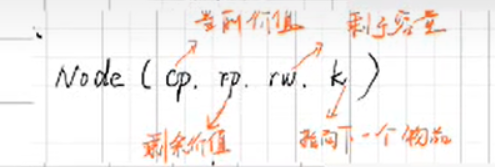 当前价值 剩余容量
Node ( cp. rp. rw. k )
剩余价值 指向下一个物品